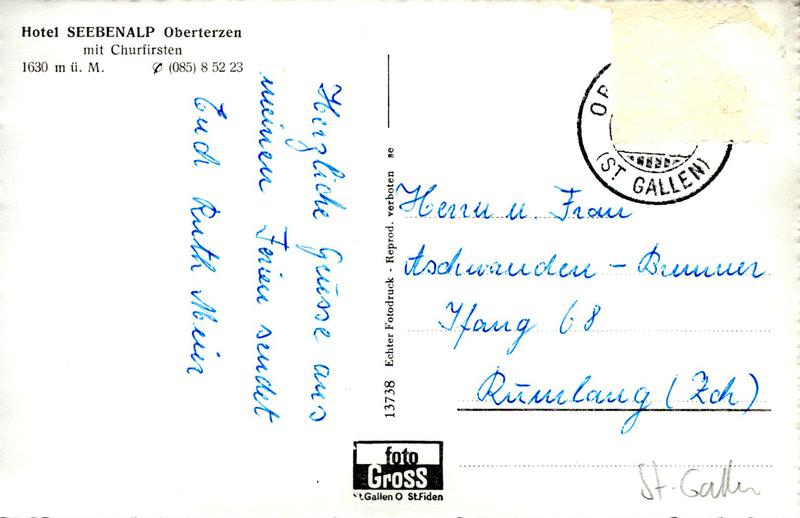 Hotel SEEBENALP Oberterzen
mit Churfirsten
1630 m ü. M. ✆ (085) 8 52 23
Herzliche Grüsse aus
meinen Ferien sendet
Euch Ruth Meier
13738 Echter Fotodruck - Reprod. verboten se
foto
GROSS
St.Gallen O St.Fiden
(ST GALLEN)
Herrn u. Frau
Aschwanden - Brunner
Ifang 68
Rümlang (Zch)
St. Gallen